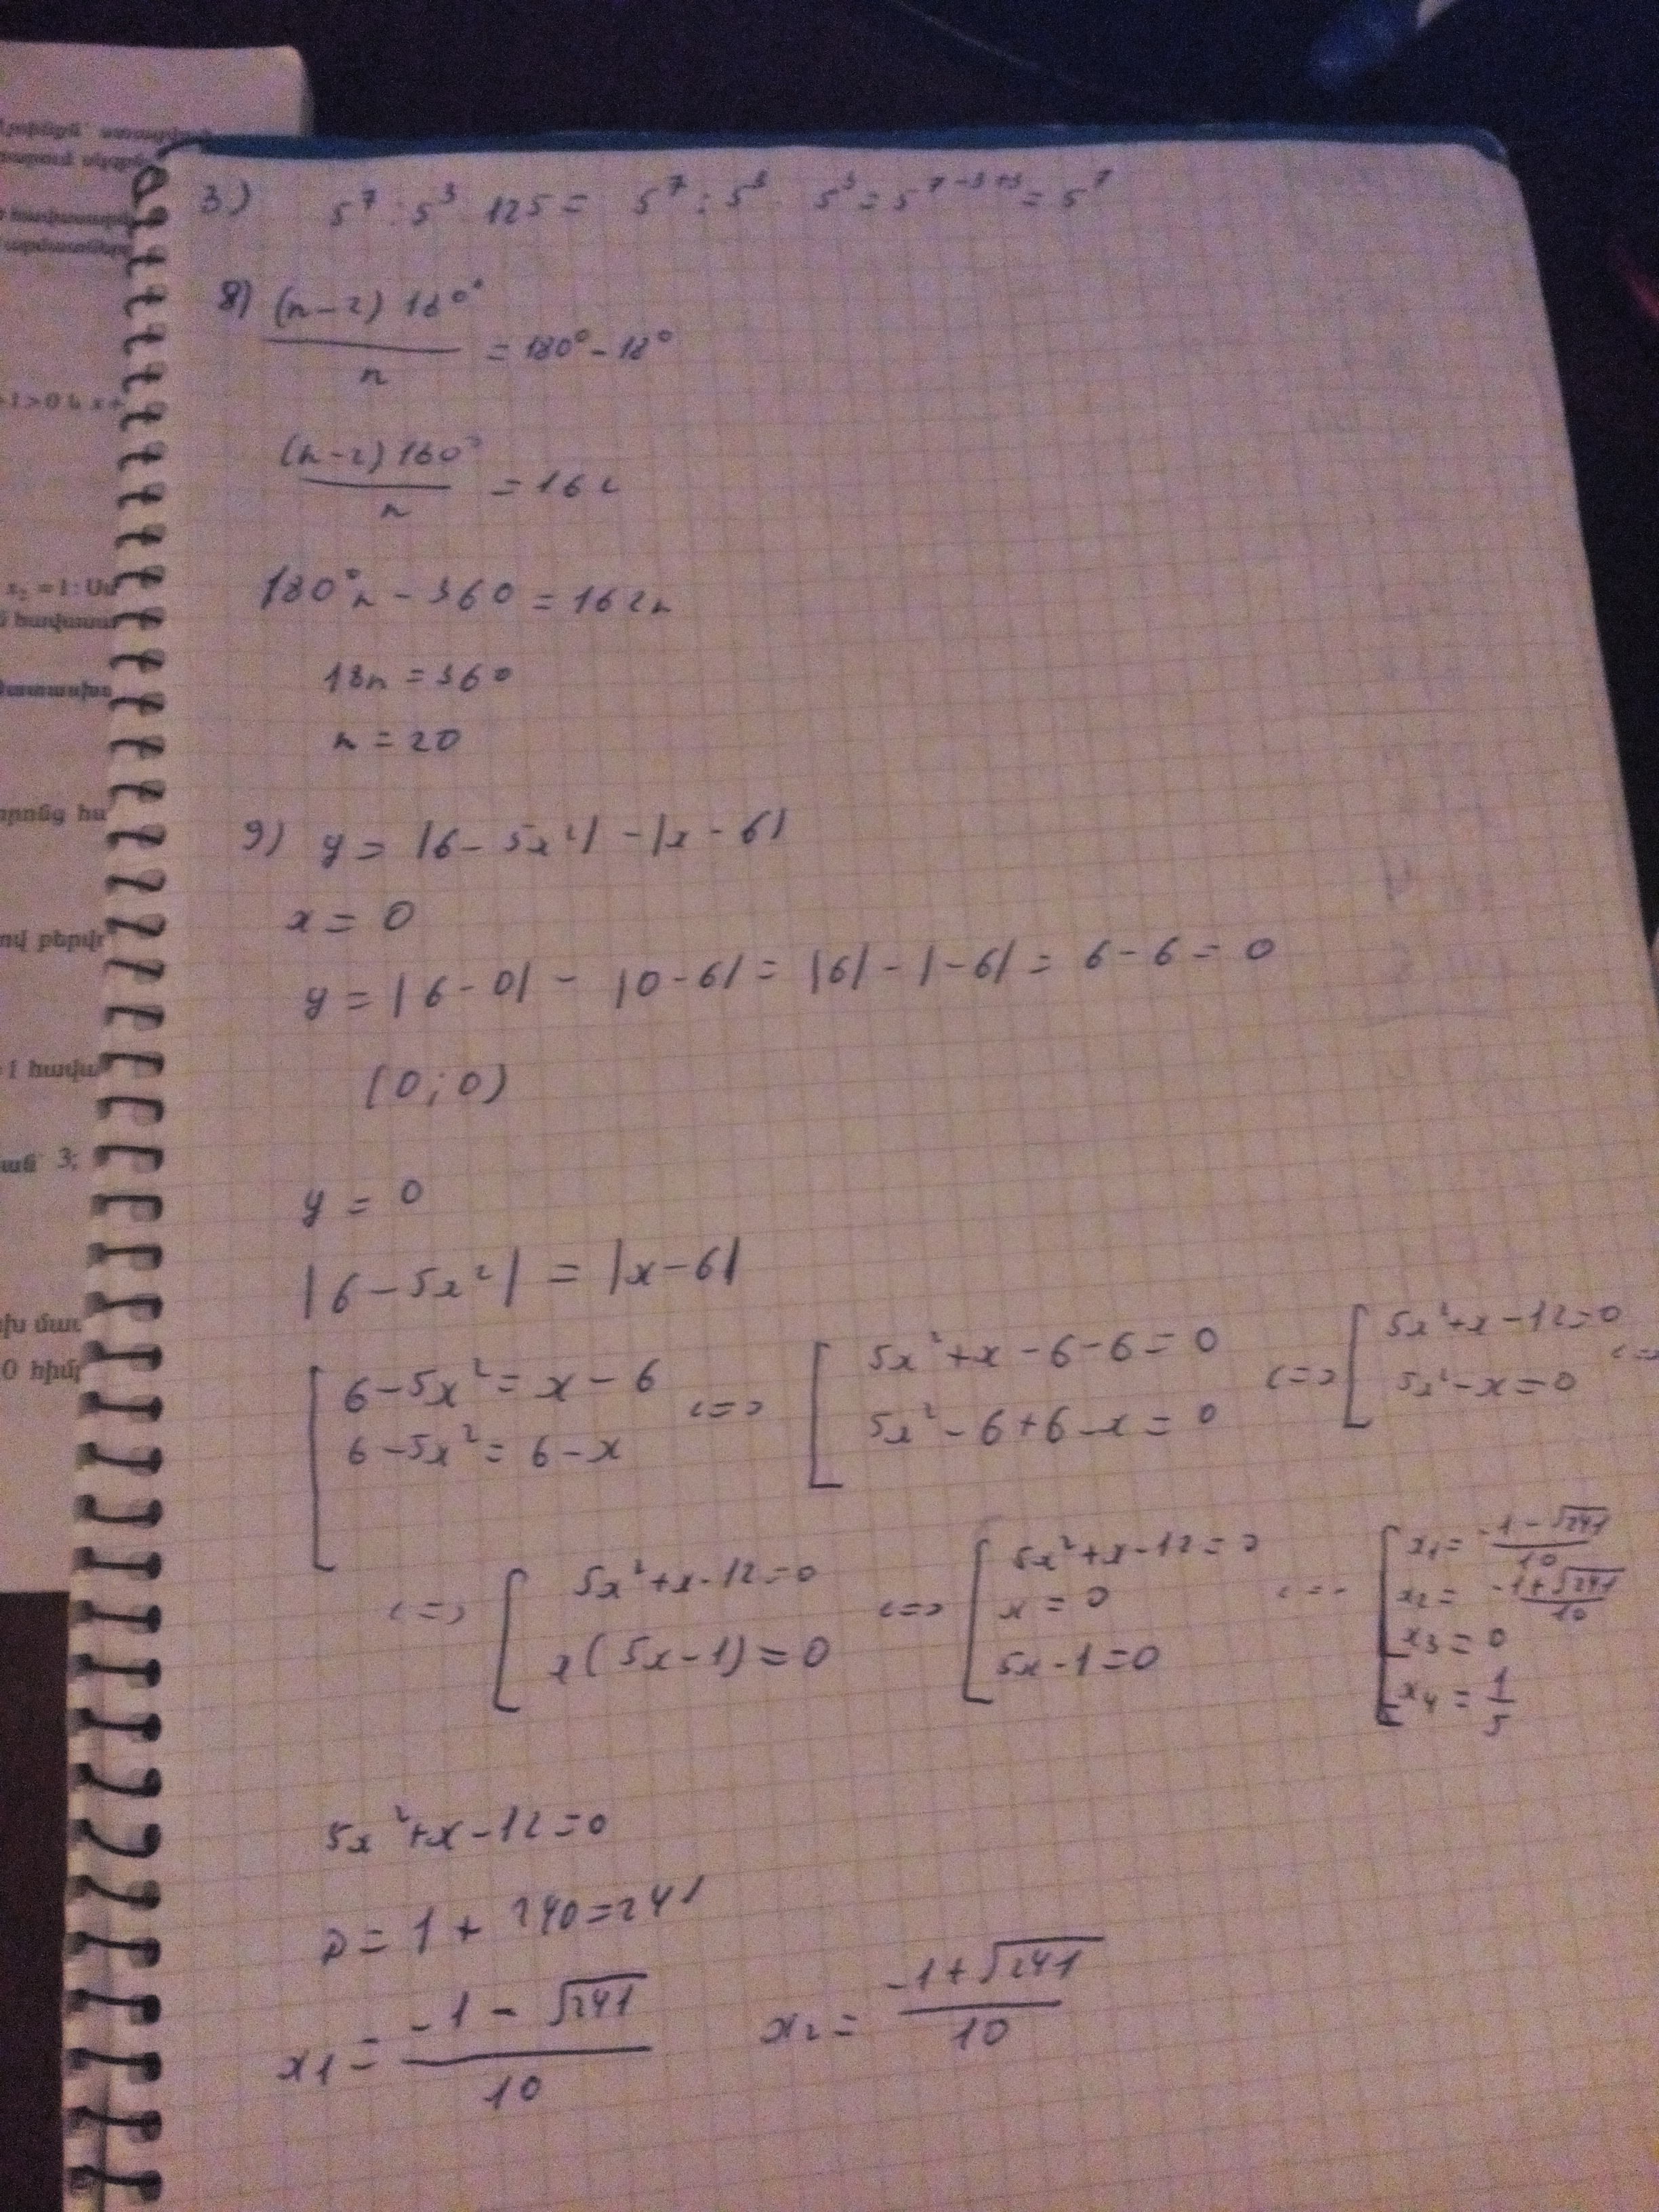 +1>0 և x+
x₂ = 1:
3;
3) 5⁷ : 5³ 125 = 5⁷ : 5³ · 5³ = 5⁷⁻³⁺³ = 5⁷
8) (n-2) 180° / n = 180° - 18°
(n-2) 180° / n = 162
180°n - 360 = 162n
18n = 360
n = 20
9) y = |6 - 5x²| - |x - 6|
x = 0
y = |6 - 0| - |0 - 6| = |6| - |-6| = 6 - 6 = 0
(0; 0)
y = 0
|6 - 5x²| = |x - 6|
[ 6 - 5x² = x - 6 <=> [ 5x² + x - 6 - 6 = 0 <=> [ 5x² + x - 12 = 0 <=>
6 - 5x² = 6 - x 5x² - 6 + 6 - x = 0 5x² - x = 0
<=> [ 5x² + x - 12 = 0 <=> [ 5x² + x - 12 = 0 <=> [ x1 = -1 - √241 / 10
x(5x - 1) = 0 x = 0 x2 = -1 + √241 / 10
5x - 1 = 0 x3 = 0
x4 = 1/5
5x² + x - 12 = 0
D = 1 + 240 = 241
x1 = -1 - √241 / 10 x2 = -1 + √241 / 10